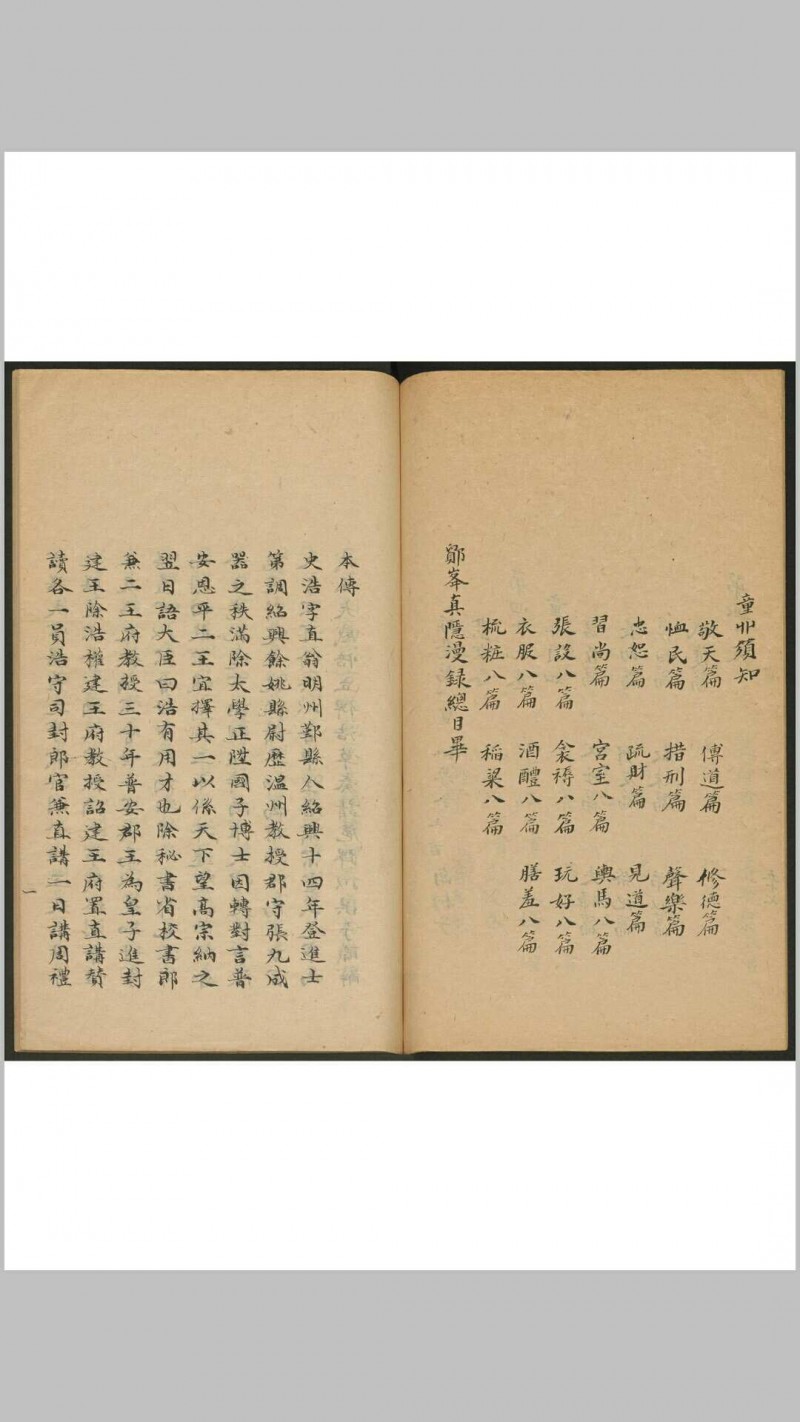 童丱須知
敬天篇 傳道篇 修德篇
恤民篇 措刑篇 聲樂篇
忠恕篇 疏財篇 見道篇
習尚篇 宮室八篇 輿馬八篇
張設八篇 衾褥八篇 玩好八篇
衣服八篇 酒醴八篇 膳羞八篇
梳粧八篇 稻粱八篇
鄮峯真隱漫録總目畢
本傳
史浩字直翁明州鄞縣人紹興十四年登進士
第調紹興餘姚縣尉歷温州教授郡守張九成
器之秩滿除太學正陞國子博士因轉對言普
安恩平二王宜擇其一以係天下望高宗納之
翌日語大臣曰浩有用才也除秘書省校書郎
兼二王府教授三十年普安郡王為皇子進封
建王除浩權建王府教授詔建王府置直講贊
讀各一員浩守司封郎官兼直講一日講周禮
一